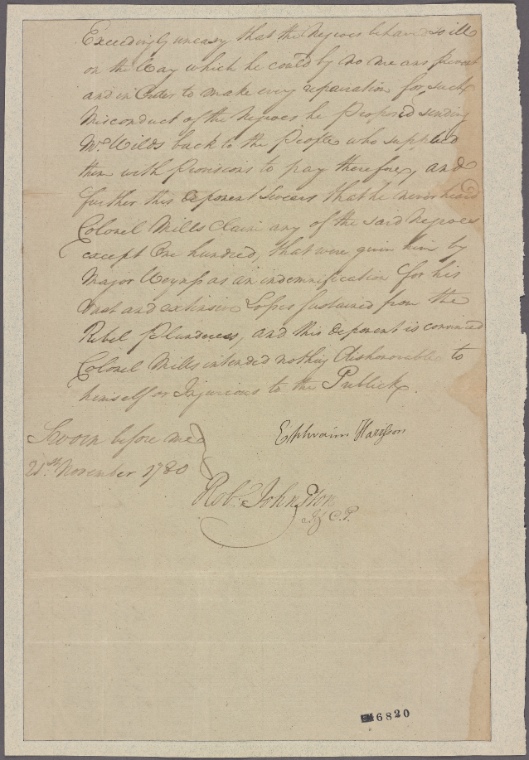 Exceedingly uneasy that the Negroes behaved so ill
on the Way which he could by no means prevent
and in Order to make every reparation for such
Misconduct of the Negroes he proposed sending
Mr. Wilds back to the People who supplied
them with Provisions to pay therefore, and
further this Deponent swears that he never heard
Colonel Mills claim any of the said Negroes
except One hundred, that were given him by
Major Wemyss as an indemnification for his
Vast and extensive Losses sustained from the
Rebel Plunderers, and this deponent is convinced
Colonel Mills intended nothing dishonorable to
himself or Injurious to the Publick.
Sworn before me
21st November 1780
Ephraim
Robt. Johnston
J. C. P.
6820